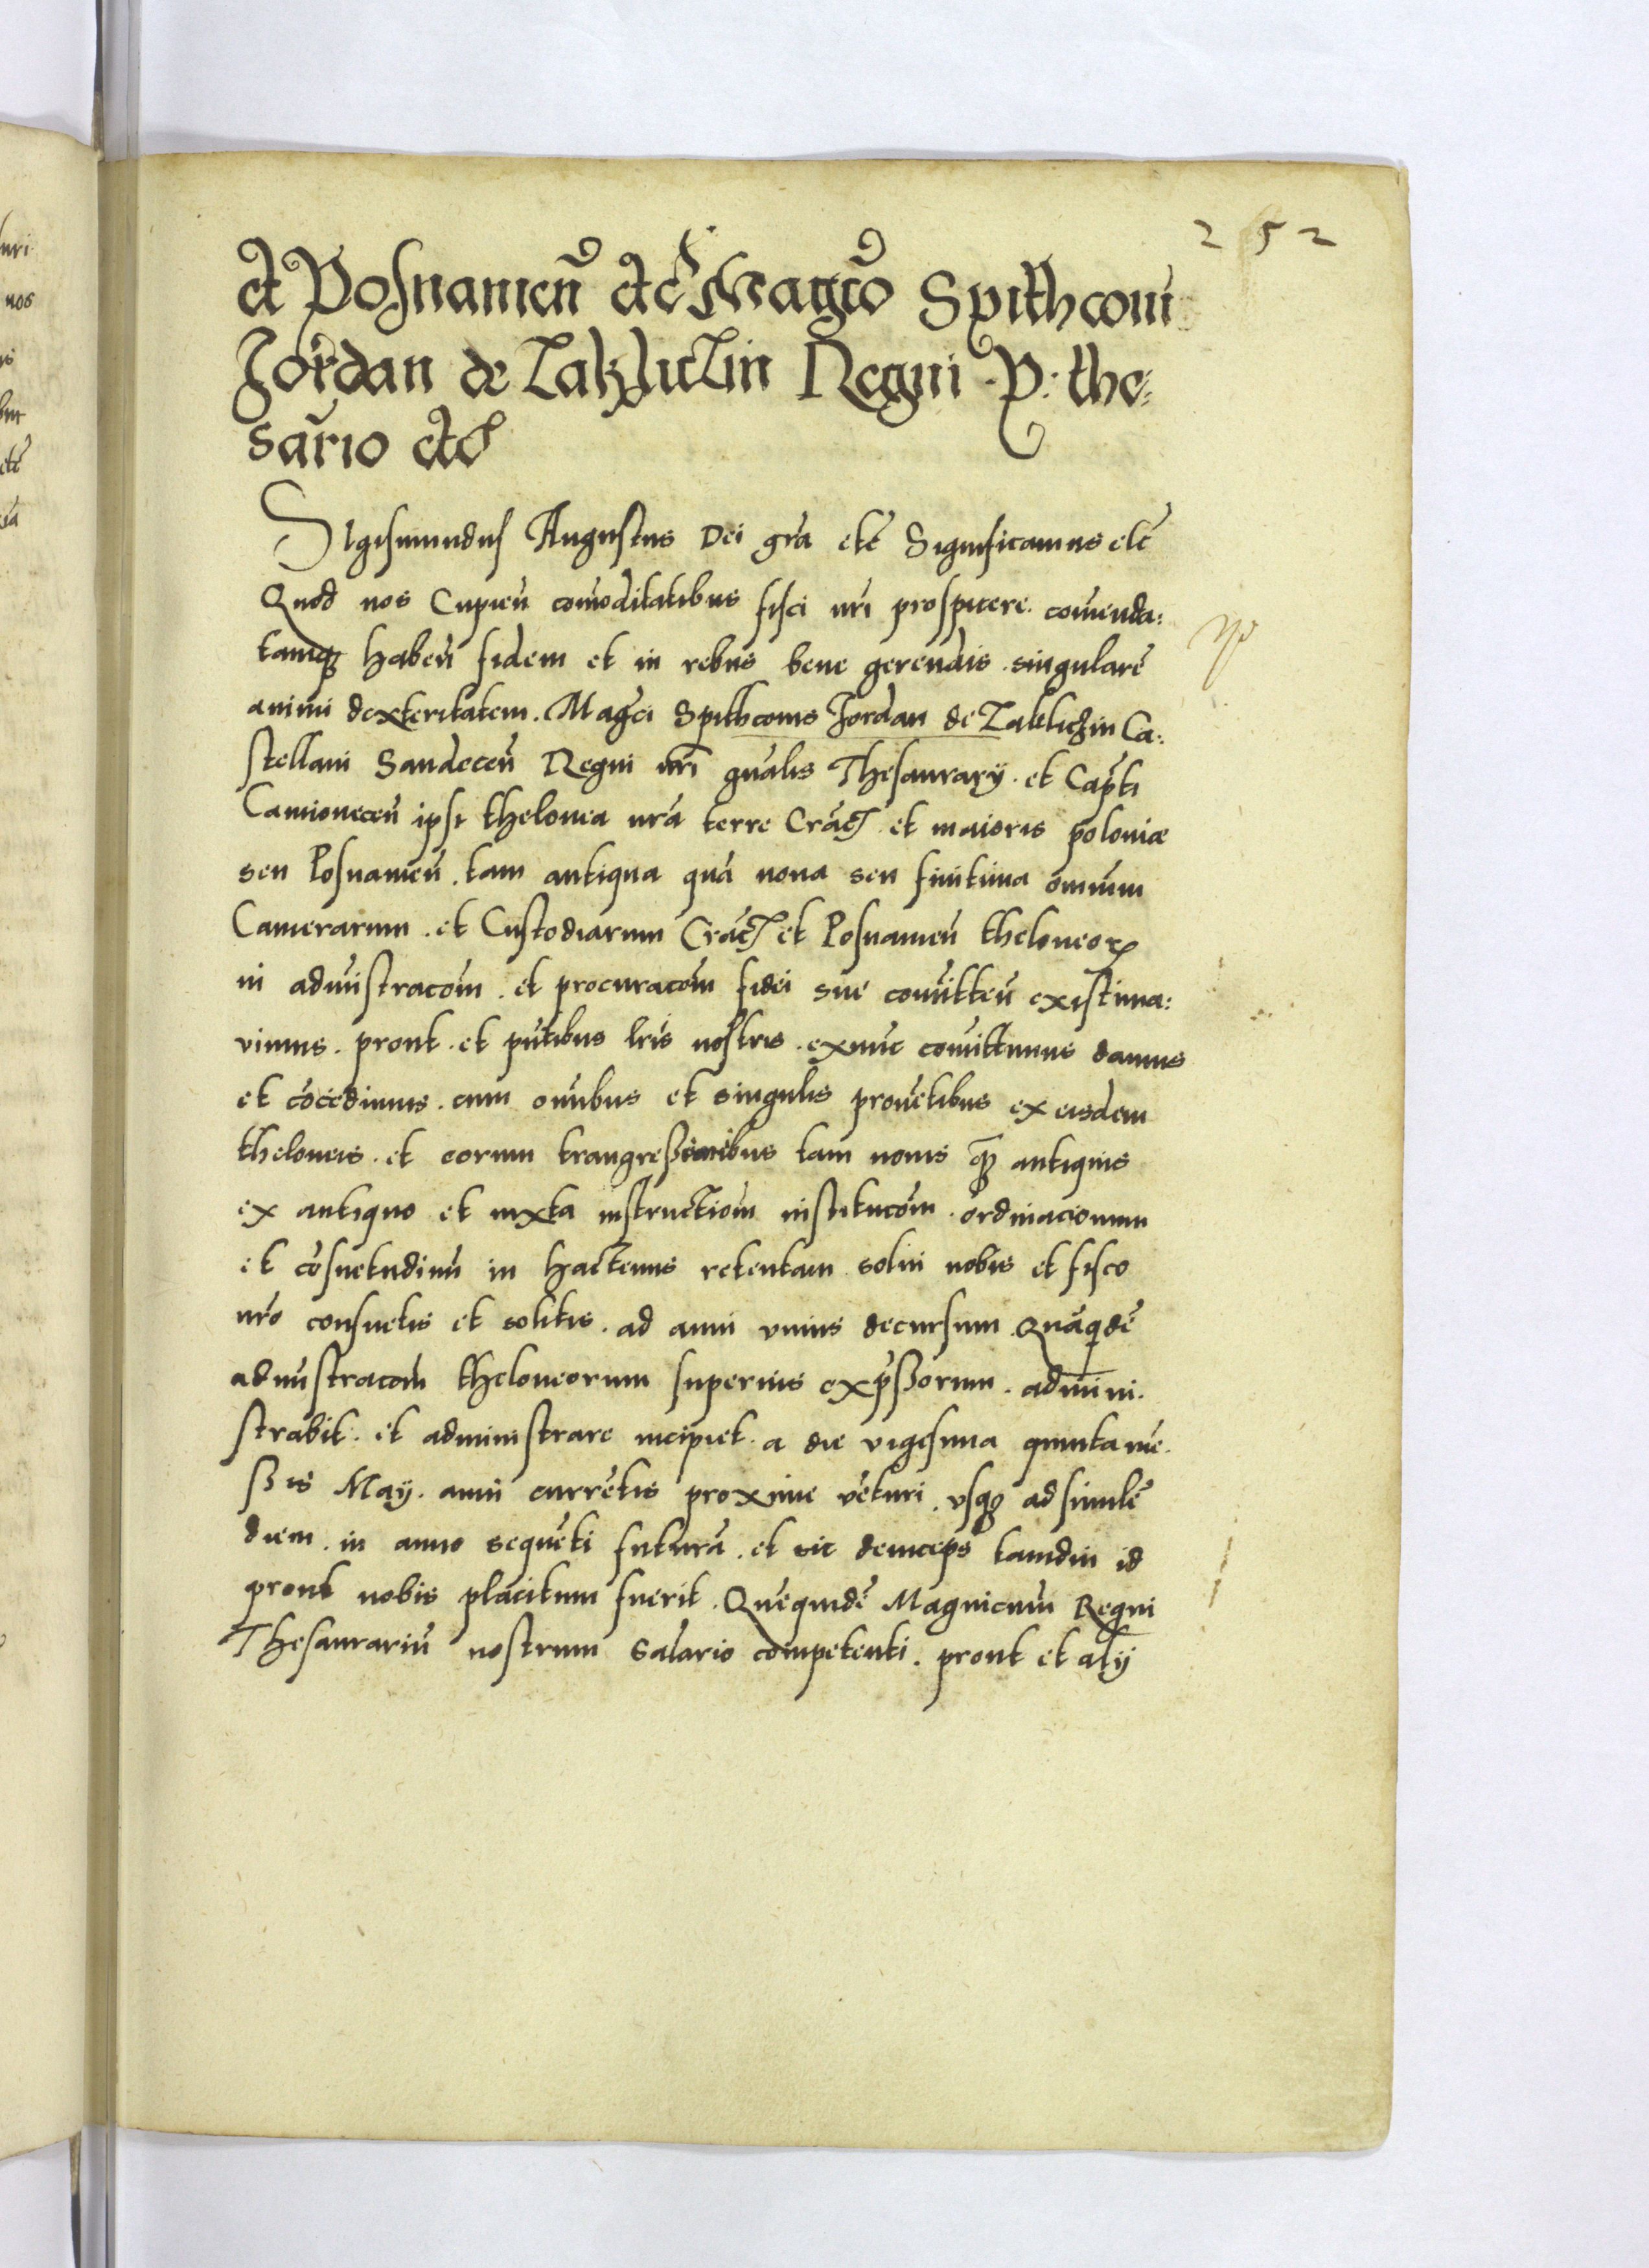 252
et Posnanien̄ etc̃ Mag̃co Spithconi
Jordan de Zaklicẑin Regni P: the=
saũrio etc̃
Sigismundus Augustus Dei gr̃a etc̃ Significamus etc̃
Quod nos Cupien̄ com̃oditatibus fisci nr̃i prospicere. com̃enda:
tamqȝ haben̄ fidem et in rebus bene gerendis. singularẽ
animi dexteritatem. Magc̃i Spithconis Jordan de Zakliczin Ca:
stellani Sandecen̄ Regni nr̃i gñalis Thesaurarÿ. et Cap̃ti
Camionecen̄ ipsi thelonea nr̃a terre Crac̃. et maioris poloniæ
seu Posnanien̄. tam antiqua quã noua seu finitima om̃ium
Camerarum. et Custodiarum Crac̃ et Posnanien̄ theloneoꝝ
in adm̃istracõm. et procuracõm fidei sue com̃itten̄ existima:
uimus. prout. et pñtibus lr̃is nostris. exnũc com̃ittimus damus
et cõcedimus. cum om̃ibus et singulis prouẽtibus ex eisdem
theloneis. et eorum trangreßionibus tam nouis qȝ antiquis
ex antiquo et iuxta instructiõm institucõm. ordinacionum
et cõsuetudinũ in hactenus retentam solui nobis et fisco
nr̃o consuetis et solitis. ad anni vnius decursum. Quãqdẽ
adm̃istracõm theloneorum superius exp̃ßorum. admini.
strabit. et administrare incipiet. a die vigesima quinta mẽ.
ßis Maÿ. anni currẽtis proxime vẽturi. vsqȝ ad similẽ
diem. in anno sequẽti futurã. et sic deinceps tamdiu id
prout nobis placitum fuerit. Quẽquidẽ Magnicũm Regni
Thesaurariũ nostrum salario competenti. prout et alÿ